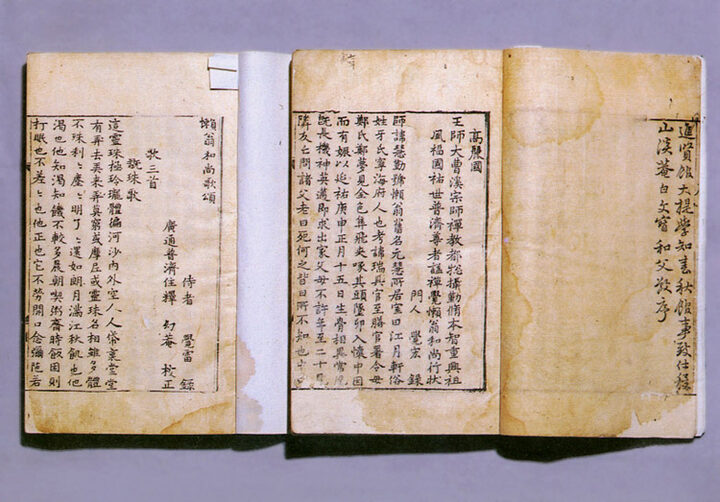 進賢館大提學知春秋館事致仕稷
山淡菴白文寶 和父敬序
高麗國
王師大曹溪宗師禪教都摠攝勤脩本智重興祖
風福國祐世普濟尊者諡禪覺懶翁和尚行狀
門人 覺宏 錄
師諱慧勤號懶翁舊名元慧所居室曰江月軒俗
姓牙氏寧海府人也考諱瑞具官至膳官署令母
鄭氏鄭夢見金色隼飛來啄其頭墜卵入懷中因
而有娠以延祐庚申正月十五日生骨相異常兒
旣長機神英邁即求出家父母不許年至二十見
隣友亡問諸父老曰死何之皆曰所不知也
懶翁和尚歌頌
侍者 覺雷 錄
廣通普濟住釋 幻菴 校正
歌三首
翫珠歌
這靈珠極玲瓏體徧河沙內外空人人帒裏堂堂
有弄去弄來弄莫窮或摩尼或靈珠名相雖多體
不殊刹〻塵〻明了〻還如朗月滿江秋飢也他
渴也他知渴知饑不較多晨朝喫粥齋時飯困則
打眠也不差〻也他正也它不勞開口念彌陁若